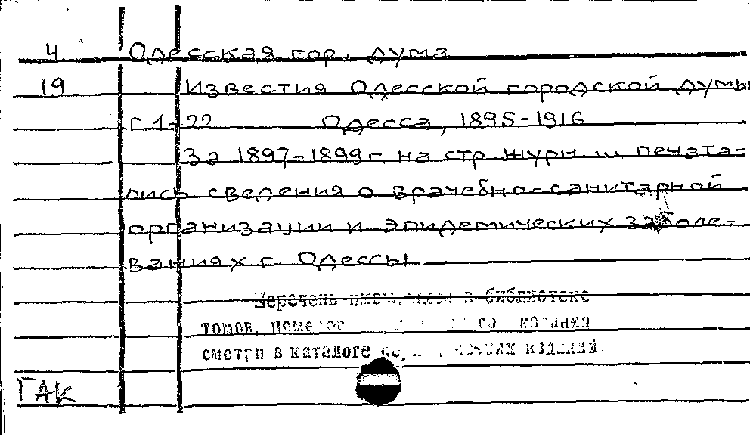 4 Одесская гор. дума
19 Известия Одесской городской думы
г. 1-22 Одесса, 1895-1916
За 1897-1899 г на стр журн печата-
лись сведения о врачебно-санитарной
организации и эпидемических заболе-
ваниях г. Одессы
Перечень имеющихся в библиотеке
томов, номеров
смотри в каталоге изданий
ГАК